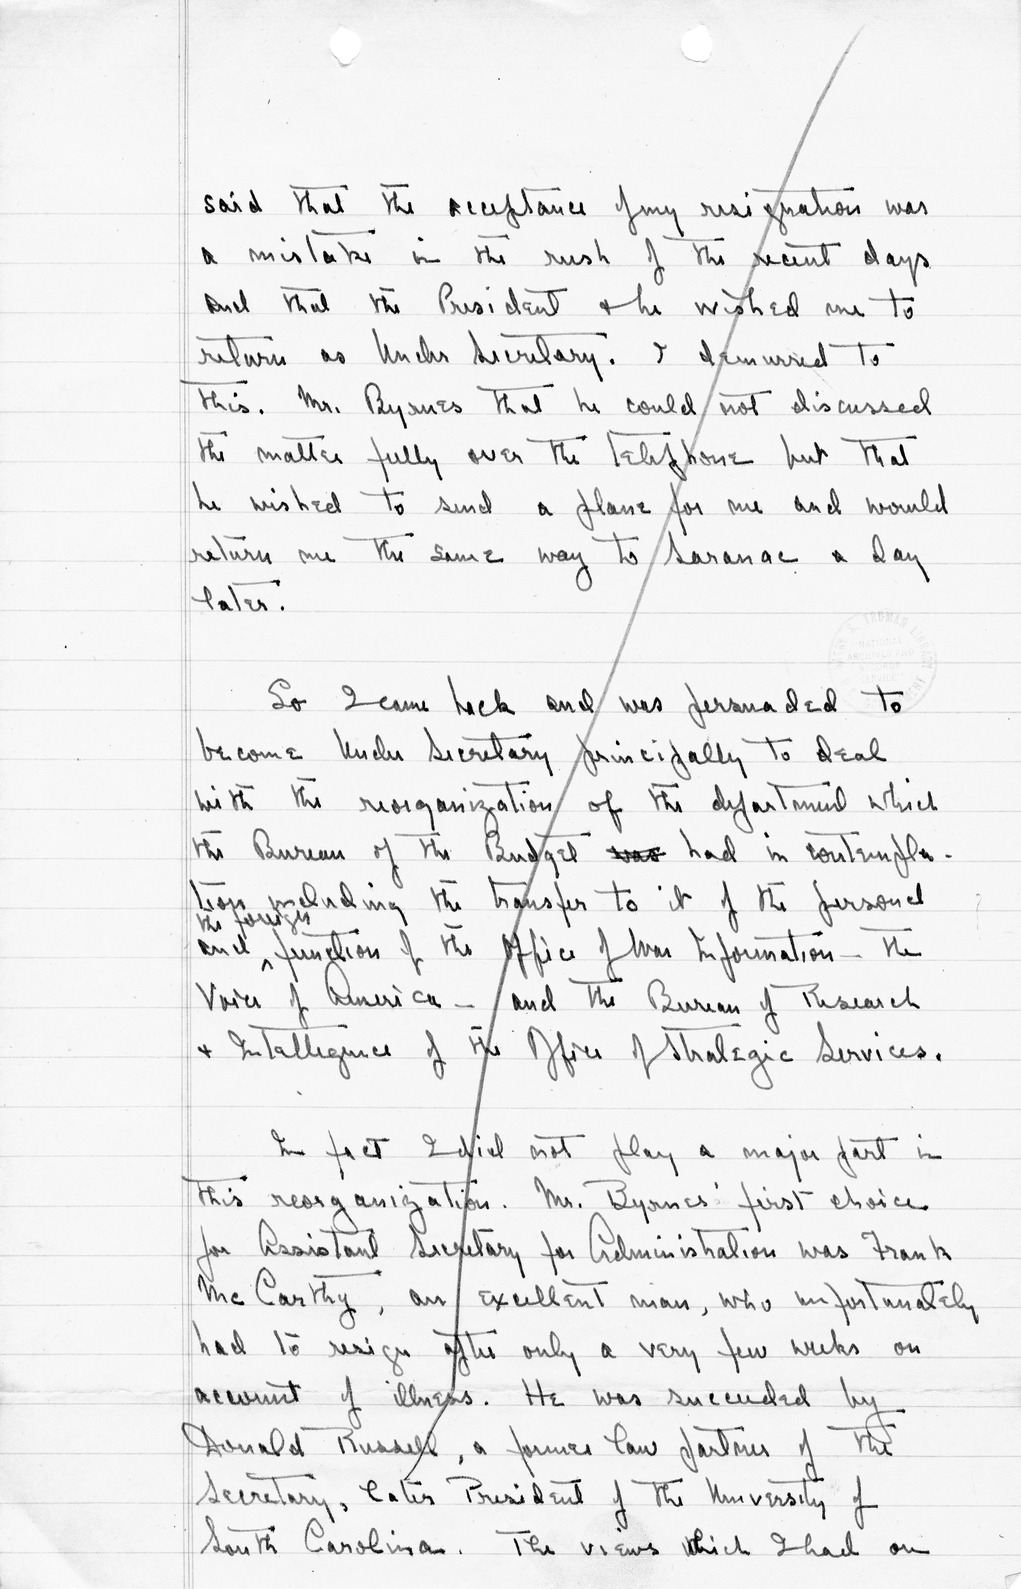 said that the acceptance of my resignation was
a mistake in the rush of the recent days
and that the President & he wished me to
return as Under Secretary. I demurred to
this. Mr. Byrnes that he could not discussed
the matter fully over the telephone but that
he wished to send a plane for me and would
return me the same way to Saranac a day
later.
So I came back and was persuaded to
become Under Secretary principally to deal
with the reorganization of the department which
the Bureau of the Budget was had in contempla-
tion including the transfer to it of the personel
the foreign
and function of the Office of War Information – the
Voice of America – and the Bureau of Research
& Intelligence of the Office of Strategic Services.
In fact I did not play a major part in
this reorganization. Mr. Byrnes' first choice
for Assistant Secretary for Administration was Frank
McCarthy, an excellent man, who unfortunately
had to resign after only a very few weeks on
account of illness. He was succeeded by
Donald Russell, a former law partner of the
Secretary, later President of the University of
South Carolina. The views which I had on